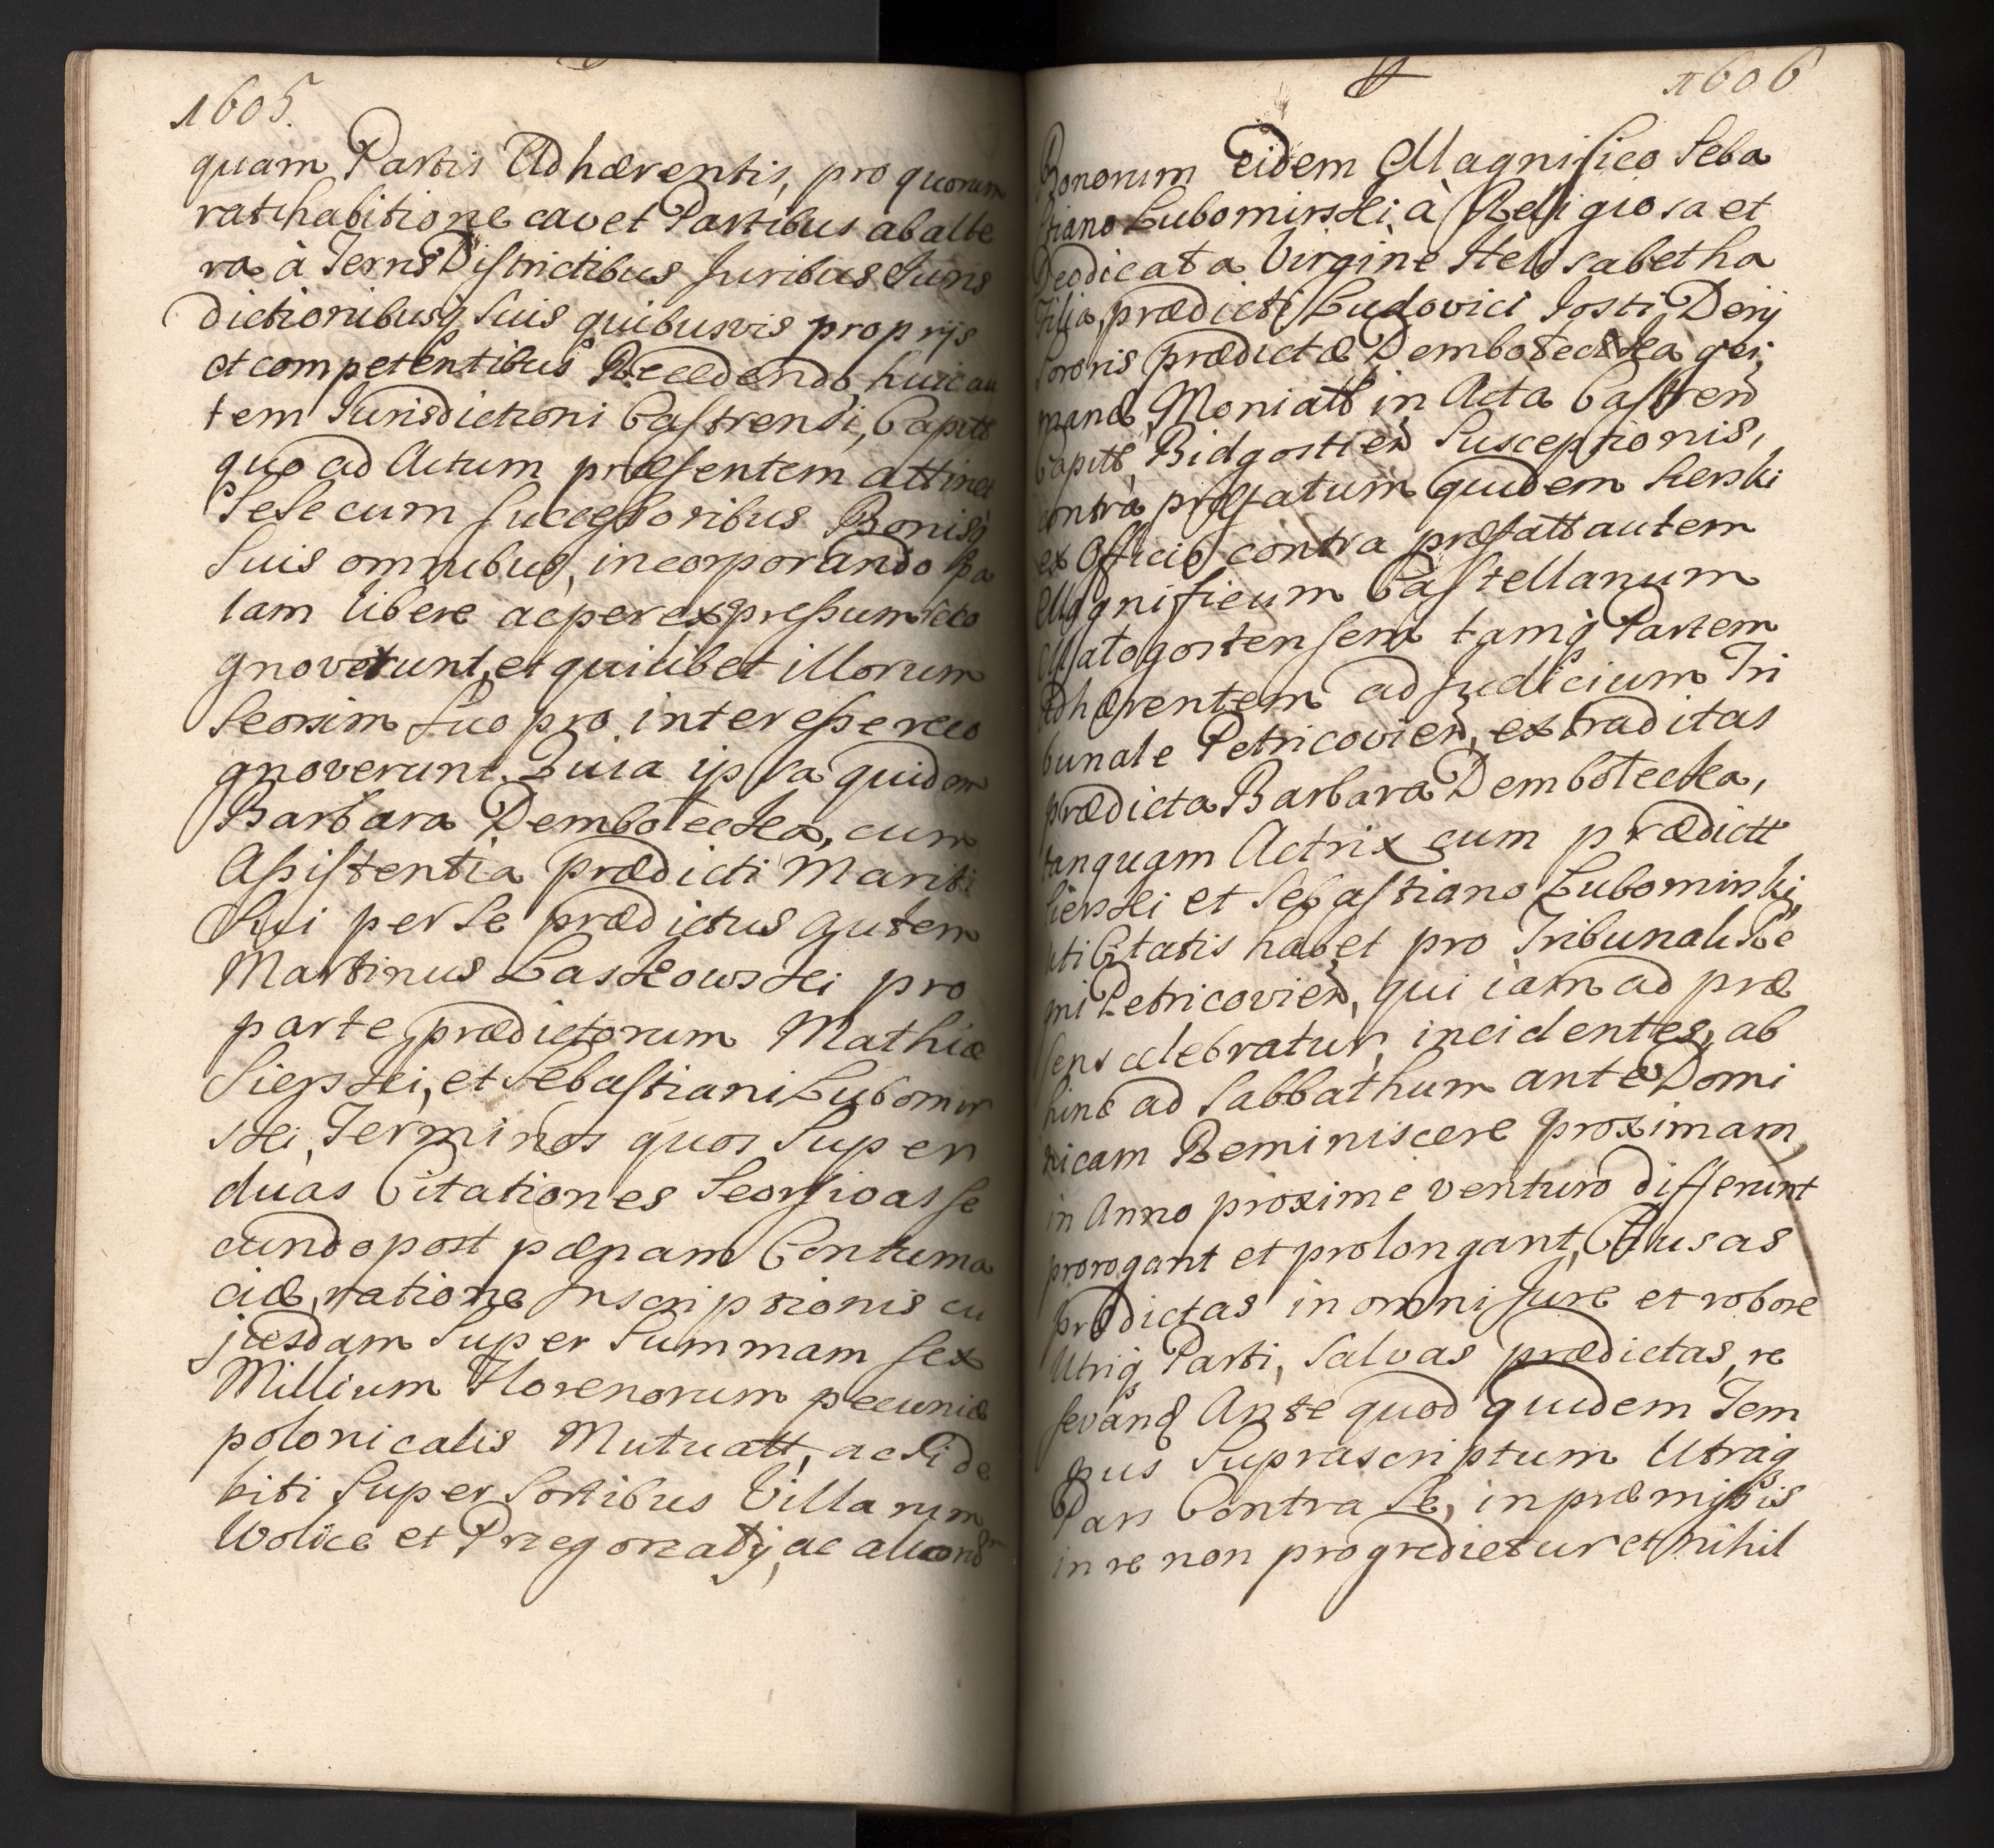 1605.
quam Partis Adhærentis, pro quorum
ratihabitione cavet Partibus ab alte
ra à Terris Districtibus Juribus Juris
dictionibusq suis quibusvis proprijs
et competentibus Recedendo, huic au
tem Jurisdictioni Castrensi, Capitt
quo ad Actum præsentem attinet
Sese cum successoribus Bonisq
suis omnibus, incorporando Pa
lam libere ac per expressum reco
gnoverunt, et quilibet illorum
seorsim suo pro interesse reco
gnoverunt. Quia ipsa quidem
Barbara Dembołecka, cum
Assistentia prædicti Mariti
Sui per se prædictus autem
Martinus Laskowski pro
parte prædictorum Mathiæ
Sierski, et Sebastiani Lubomir
ski, Terminos quos super
duas Citationes seorsivas se
cundo post pænam Contuma
ciæ, ratione Inscriptionis cu
jusdam super summam sex
Millium Florenorum pecuniæ
polonicalis Mutuatt, ac Fide
biti super sortibus Villarum
Wolice et Przegonaty, ac aliorum
1606
Bonorum eidem Magnifico Seba
stiano Lubomirski à Religiosa et
Deodicata Virgine Helisabetha
Filia, prædicti Ludovici Josti Decij
Sororis prædictæ Dembołecka ger
manæ, Moniatt in Acta Castren
Capitt, Bidgostien Susceptionis,
contra præfatum quidem Sierski
ex Officio, contra præfatt autem
Magnificum Castellanum
Małogostensem tamq Partem
Adhærentem ad Judicium Tri
bunale Petricovien, extraditas
prædicta Barbara Dembołecka,
tanquam Actrix cum prædictt
Sierski et Sebastiano Lubomirski,
uti Citatis habet pro Tribunali Re
gni Petricovien, qui iam ad præ
sens celebratur, incidentes, ab
hinc ad Sabbathum ante Domi
nicam Reminiscere proximam,
in Anno proxime venturo differunt
prorogant et prolongant, Causas
prædictas in omni Jure et robore
Utriq Parti, Salvas prædictas, re
servand Ante quod quidem Tem
pus Suprascriptum Utraq
Pars Contra Se, in præmissis
in re non progredietur et nihil